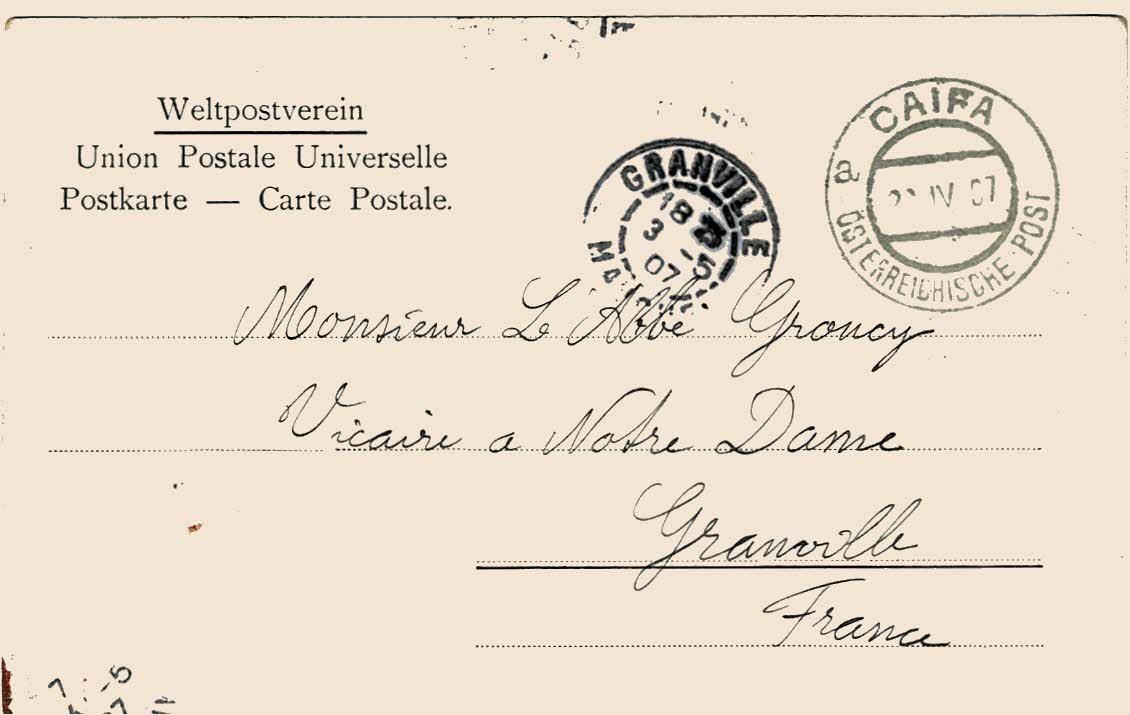 Weltpostverein
Union Postale Universelle
Postkarte — Carte Postale.
CAIFA
a
IV 07
ÖSTERREICHISCHE POST
GRANVILLE
18
3 -5
07
Monsieur L'Abbé Groucy
Vicaire a Notre Dame
Granville
France
7 -5